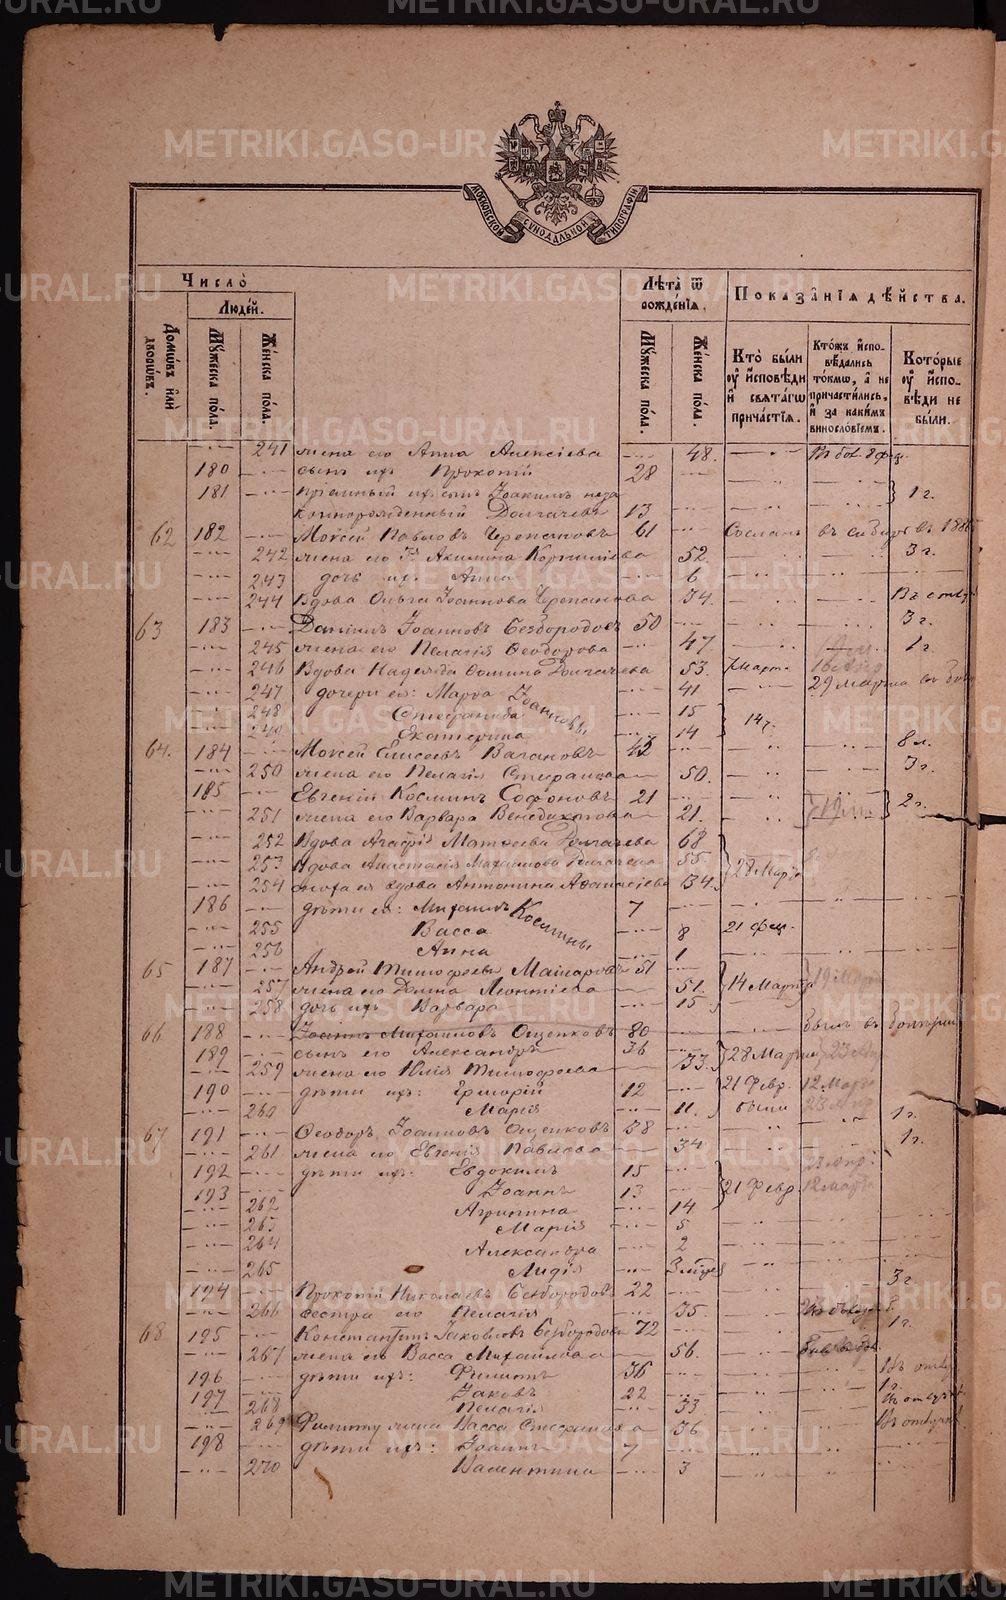 METRIKI.GASO-URAL.RU
МОСКОВСКОЙ СѴНОДАЛЬНОЙ ТИПОГРАФІИ
Число̀
Людéй.
Домѡ́въ и҆лѝ дворѡ́въ.
Мꙋ́жеска по́ла.
Же́нска по́ла.
Лѣ̑та ѿ рожде́нїѧ.
Мꙋ́жеска по́ла.
Же́нска по́ла.
Показа̑нїѧ дѣ́йства.
Кто̀ бы́ли ᲂу҆ и҆сповѣди и҆ свѧта́гѡ прича́стїѧ.
Кто́жъ и҆спо-вѣ́дались то́кмѡ, а҆ не причасти́лись, и҆ за каки́мъ винословїемъ.
Кото́рые ᲂу҆ и҆спо-вѣди не бы́ли.
241 жена его Анна Алексіева 48.
180 сынъ ихъ Прокопій 28
181 пріемный ихъ сынъ Іоакимъ неза 1 г.
коннорожденный Долгачевъ 13
62 182 Моѵсей Павловъ Черепановъ 61 Сосланъ въ сибирь въ 188
242 жена его Акилина Корниліева 52. 3 г.
243 дочь ихъ Анна 6
244 Вдова Ольга Іоаннова Черепанова 34.
63 183 Даніилъ Іоанновъ Безбородовъ 50 3 г.
245 жена его Пелагія Ѳеодорова 47 1 г.
246 Вдова Надежда Долгачева 53. 7 Марта
247 дочери ея: Марѳа 41 29 марта
248 Стефанида Іоанновы 15 14 г.
249 Екатерина 14
64. 184 Моѵсей Елисеевъ Вагановъ 43 8 л.
250 жена его Пелагія Стефанова 50. 3 г.
185 Евгеній Косминъ Софоновъ 21 2 г.
251 жена его Варвара Венедиктова 21.
252 Вдова Агафія Матѳеева Долгачева 68
253 Вдова Анастасія Михаилова Долгачева 55. 28 Марта
254 сноха ея вдова Антонина Аѳанасіева 34.
186 дѣти ея: Михаилъ Косьмины 7
255 Васса 8 21 фев.
256 Анна 1
65 187 Андрей Тимоѳеевъ Макаровъ 51
257 жена его Домна Леонтіева 51. 14 Марта
258 дочь ихъ Варвара 15.
66 188 Іоаннъ Михаиловъ Ощепковъ 80
189 сынъ его Александръ 36 28 Марта
259 жена его Юлія Тимоѳеева 33.
190 дѣти ихъ: Григорій 12 21 Февр. 12 Марта
260 Марія 11. были
67 191 Ѳеодоръ Іоанновъ Ощепковъ 38 1 г.
261 жена его Евгенія Павлова 34 1 г.
192 дѣти ихъ: Евдокимъ 15
193 Іоаннъ 13 21 Февр. 12 Марта
262 Агрипина 14
263 Марія 5
264 Александра 2
265 Лидія 3
194 Прокопій Николаевъ Безбородовъ 22 3 г
266 сестра его Пелагія 35.
68 195 Константинъ Іаковлевъ Безбородовъ 72 1 г.
267 жена его Васса Михаилова 56.
196 дѣти ихъ: Филиппъ 36
197 Іаковъ 22 1 г.
268 Пелагія 33
269 Филиппу жена Васса Стефанова 36
198 дѣти ихъ: Іоаннъ 7
270 Валентина 3